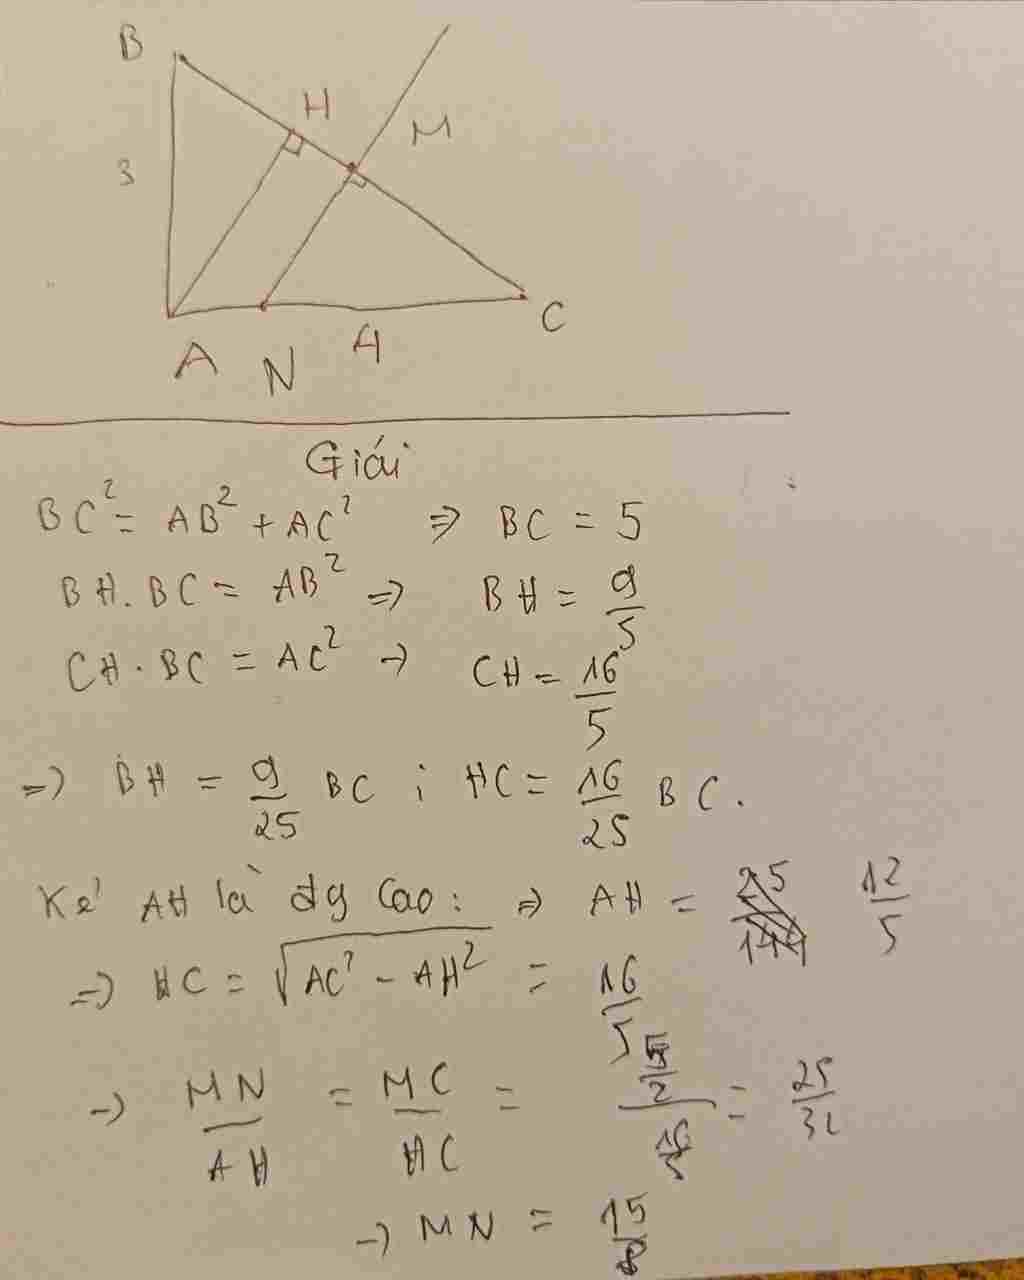 B
H
M
3
A N 4 C
Giải
BC² = AB² + AC² => BC = 5
BH.BC = AB² => BH = 9/5
CH.BC = AC² -> CH = 16/5
=> BH = 9/25 BC ; HC = 16/25 BC.
Kẻ AH là đg cao: => AH = 12/5
=> HC = √(AC² - AH²) = 16/5
-> MN/AH = MC/HC = (5/2)/(16/5) = 25/32
-> MN = 15/8